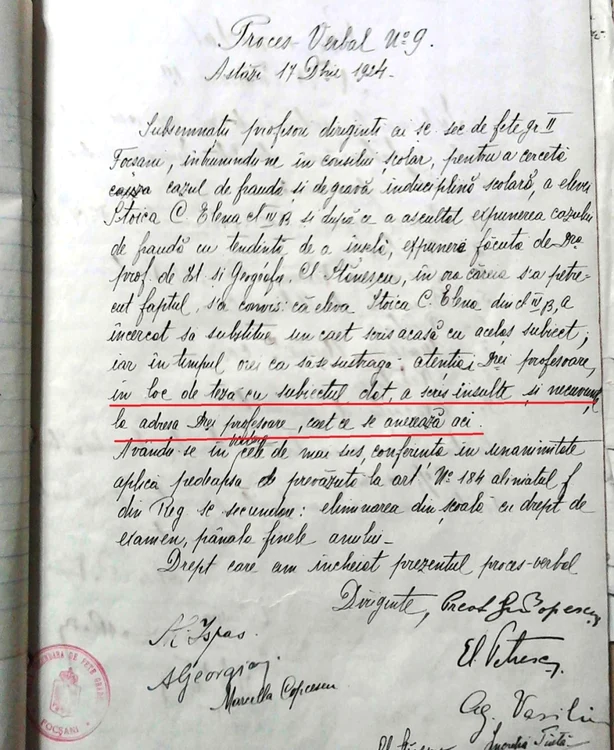 Proces-Verbal No 9.
Astăzi 17 Dbrie 1924.-
Subsemnatii profesori diriginti ai sc. sec. de fete gr. II
Focsani, întrunindu-ne în consiliu școlar, pentru a cerceta
cazul de fraudă și de gravă indisciplină școlară, a elevei
Stoica C. Elena cl IV B și după ce a ascultat expunerea cazului
de fraudă cu tendinta de a însela, expunere făcuta de Dra
prof. de Ist. și Geografie, El. Stănescu, în ora căreia s'a petre-
cut faptul, s'a convins: că eleva Stoica C. Elena din cl IV B, a
încercat sa substitue un caet scris acasă cu acelas subiect;
iar în timpul orei ca sa se sustragă atentiei Drei profesoare,
în loc de teza cu subiectul dat, a scris insulte și necuviinte
la adresa Drei profesoare, caet ce se anexează aci.
Avându-se în vedere cele de mai sus, conferinta în unanimitate
aplică pedeapsa de prevăzuta la art. No 184 aliniatul f
din Reg sc. secundare: eliminarea din școală cu drept de
examen, pânala finele anului.-
Drept care am încheiat prezentul proces-verbal
Dirigente, Preot Gr. Popescu
N. Ispas.
El. Petrescu
A Georgian
Marcella Copcescu
Ag. Vasiliu
El. Stănescu
DE FETE
FOCȘANI